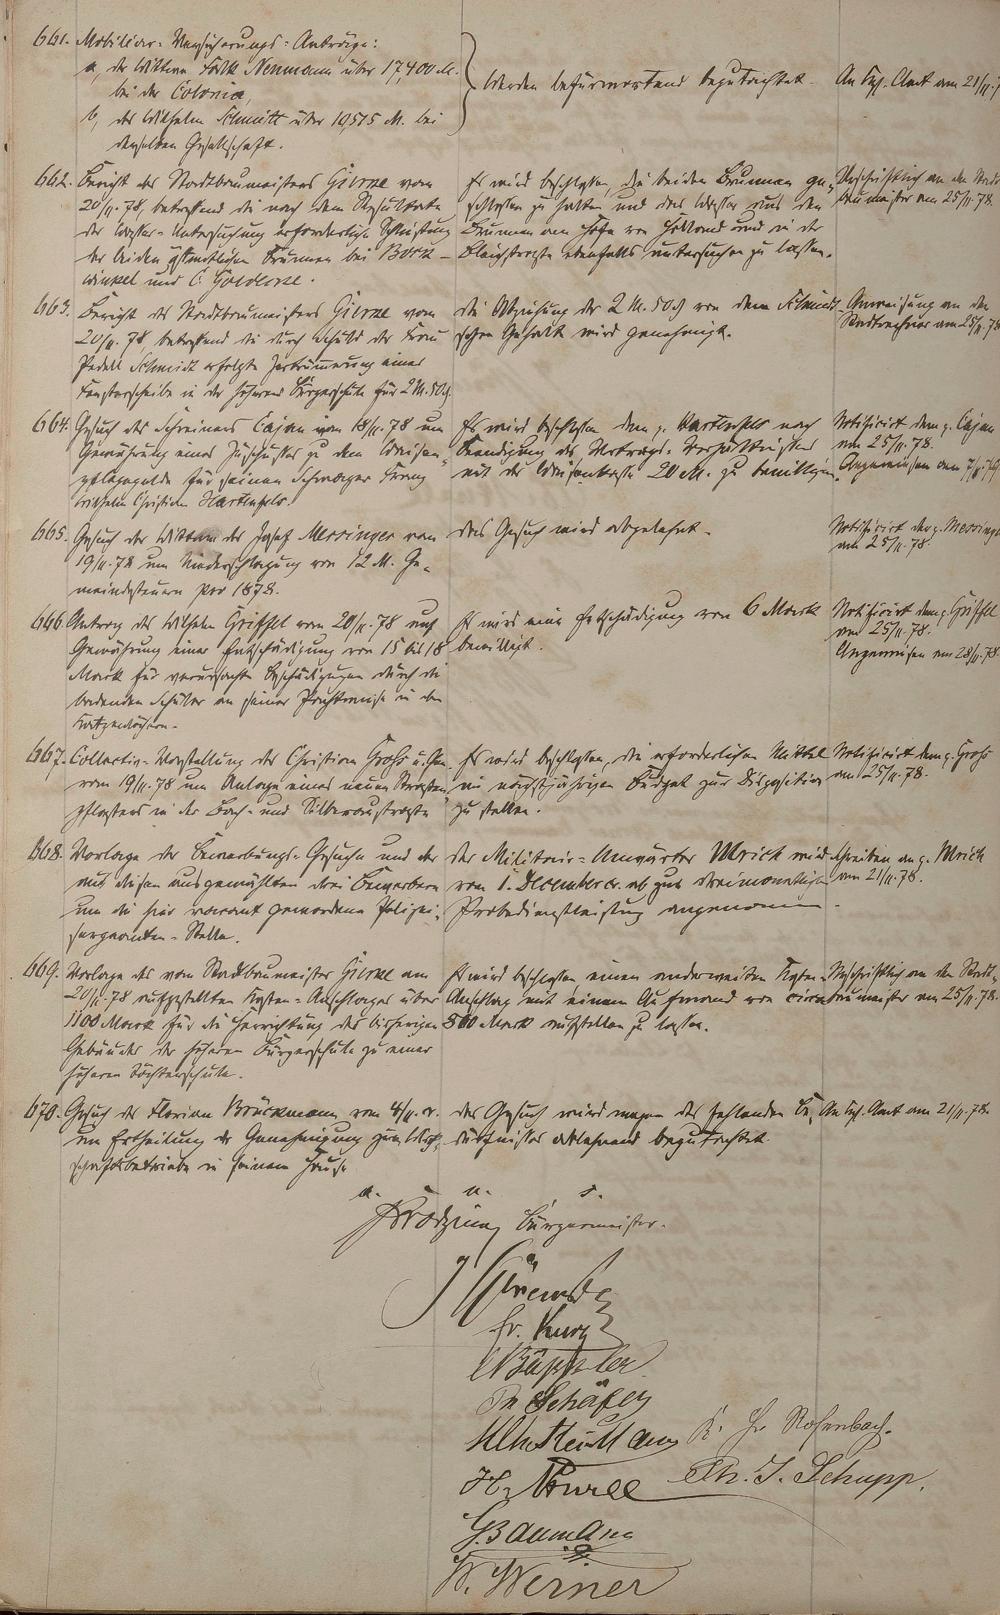 661. Mobiliar-Versicherungs-Anträge:
a, der Wittwe Falk Neumann über 17400 M.
bei der Colonia,
b, des Wilhelm Schmitt über 10,515 M. bei
derselben Gesellschaft.
Werden befürwortend begutachtet.
An Kgl. Amt am 21/11.
662. Bericht des Stadtbaumeisters Gierne vom
20/11.78, betreffend die nach dem Resultate
der Wasser-Untersuchung erforderliche Schließung
der beiden öffentlichen Brunnen bei Bork-
winkel und C. Goldlene.
Es wird beschlossen, die beiden Brunnen ge-
schlossen zu halten und das Wasser aus den
Brunnen am Hofe von Holland und in der
Bleichstraße ebenfalls untersuchen zu lassen.
Abschriftlich an den Stadt-
baumeister am 25/11.78.
663. Bericht des Stadtbaumeisters Gierne vom
20/11.78, betreffend die durch Schuld der Frau
Pedell Schmidt erfolgte Zertrümmerung einer
Fensterscheibe in der höheren Bürgerschule für 2 M. 50 ₰.
Die Abziehung der 2 M. 50 ₰ von dem Schmidt-
schen Gehalt wird genehmigt.
Anweisung an den
Stadtrechner am 25/11.78
664. Gesuch des Schreiners Cajan vom 18/11.78 um
Gewährung eines Zuschusses zu dem Waisen-
pflegegelde für seinen Schwager Franz
Wilhelm Christian Hartenfels.
Es wird beschlossen dem p. Hartenfels nach
Beendigung des Vertrags-Verhältnisses
mit der Waisenkasse 20 M. zu bewilligen.
Notificirt dem p. Cajan
am 25/11.78.
Angewiesen am 7/
665. Gesuch der Wittwe des Josef Messinger vom
19/11.78 um Niederschlagung von 12 M. Ge-
meindesteuern pro 1878.
Das Gesuch wird abgelehnt.
Notificirt der p. Messinger
am 25/11.78.
666. Antrag des Wilhelm Griffel vom 20/11.78 auf
Gewährung einer Entschädigung von 15 bis 18
Mark für verursachte Beschädigungen durch die
badenden Schüler an seiner Fruchtwiese in den
Katzenlöchern.
Es wird eine Entschädigung von 6 Mark
bewilligt.
Notificirt dem p. Griffel
am 25/11.78.
Angewiesen am 28/11.78.
667. Collectiv-Vorstellung des Christian Groß u. Gen.
vom 19/11.78 um Anlage eines neuen Straßen-
pflasters in der Bach- und Silberaustraße
Es wird beschlossen, die erforderlichen Mittel
im nächstjährigen Budget zur Disposition
zu stellen.
Notificirt dem p. Groß
am 25/11.78.
668. Vorlage der Bewerbungs-Gesuche und der
aus diesen ausgewählten drei Bewerbern
um die hier vacant gewordene Polizei-
sergeanten-Stelle.
Der Militair-Anwärter Ulrich wird
vom 1. December cr. ab zur dreimonatlichen
Probedienstleistung angenommen.
Schreiben an p. Ulrich
am 21/11.78.
669. Vorlage des vom Stadtbaumeister Gierne am
20/11.78 aufgestellten Kosten-Anschlages über
1100 Mark für die Herrichtung des bisherigen
Gebäudes der höheren Bürgerschule zu einer
höheren Töchterschule.
Es wird beschlossen, einen anderweiten Kosten-
Anschlag mit einem Aufwand von circa
800 Mark aufstellen zu lassen.
Abschriftlich an den Stadt-
baumeister am 25/11.78.
670. Gesuch des Florian Brückmann vom 4/11. cr.
um Ertheilung der Genehmigung zum Wirth-
schaftsbetriebe in seinem Hause
Das Gesuch wird wegen des fehlenden Be-
dürfnisses ablehnend begutachtet.
An Kgl. Amt am 21/11.78.
a. u. s.
Bürgermeister.
Fr. Kurz
Ph. Schäfer
K. Fr. Rosenbach.
Ph. J. Schupp.
G. Baumann
W. Werner